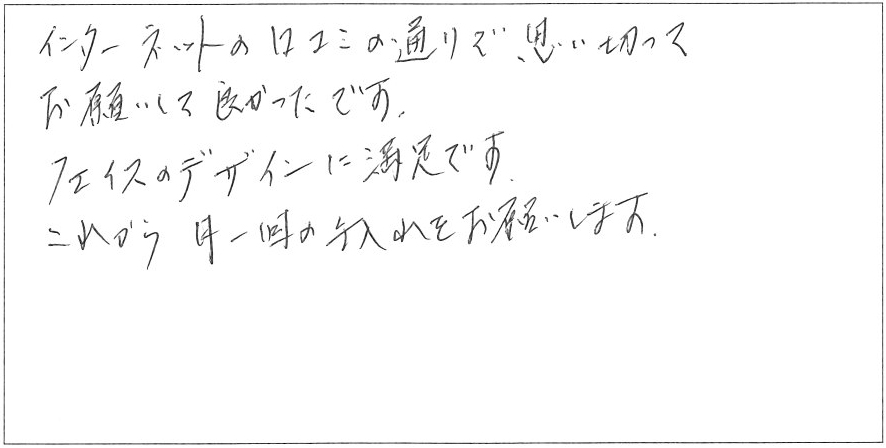 インターネットの口コミの通りで、思い切って
お願いして良かったです。
フェイスのデザインに満足です。
これから月一回の手入れをお願いします。